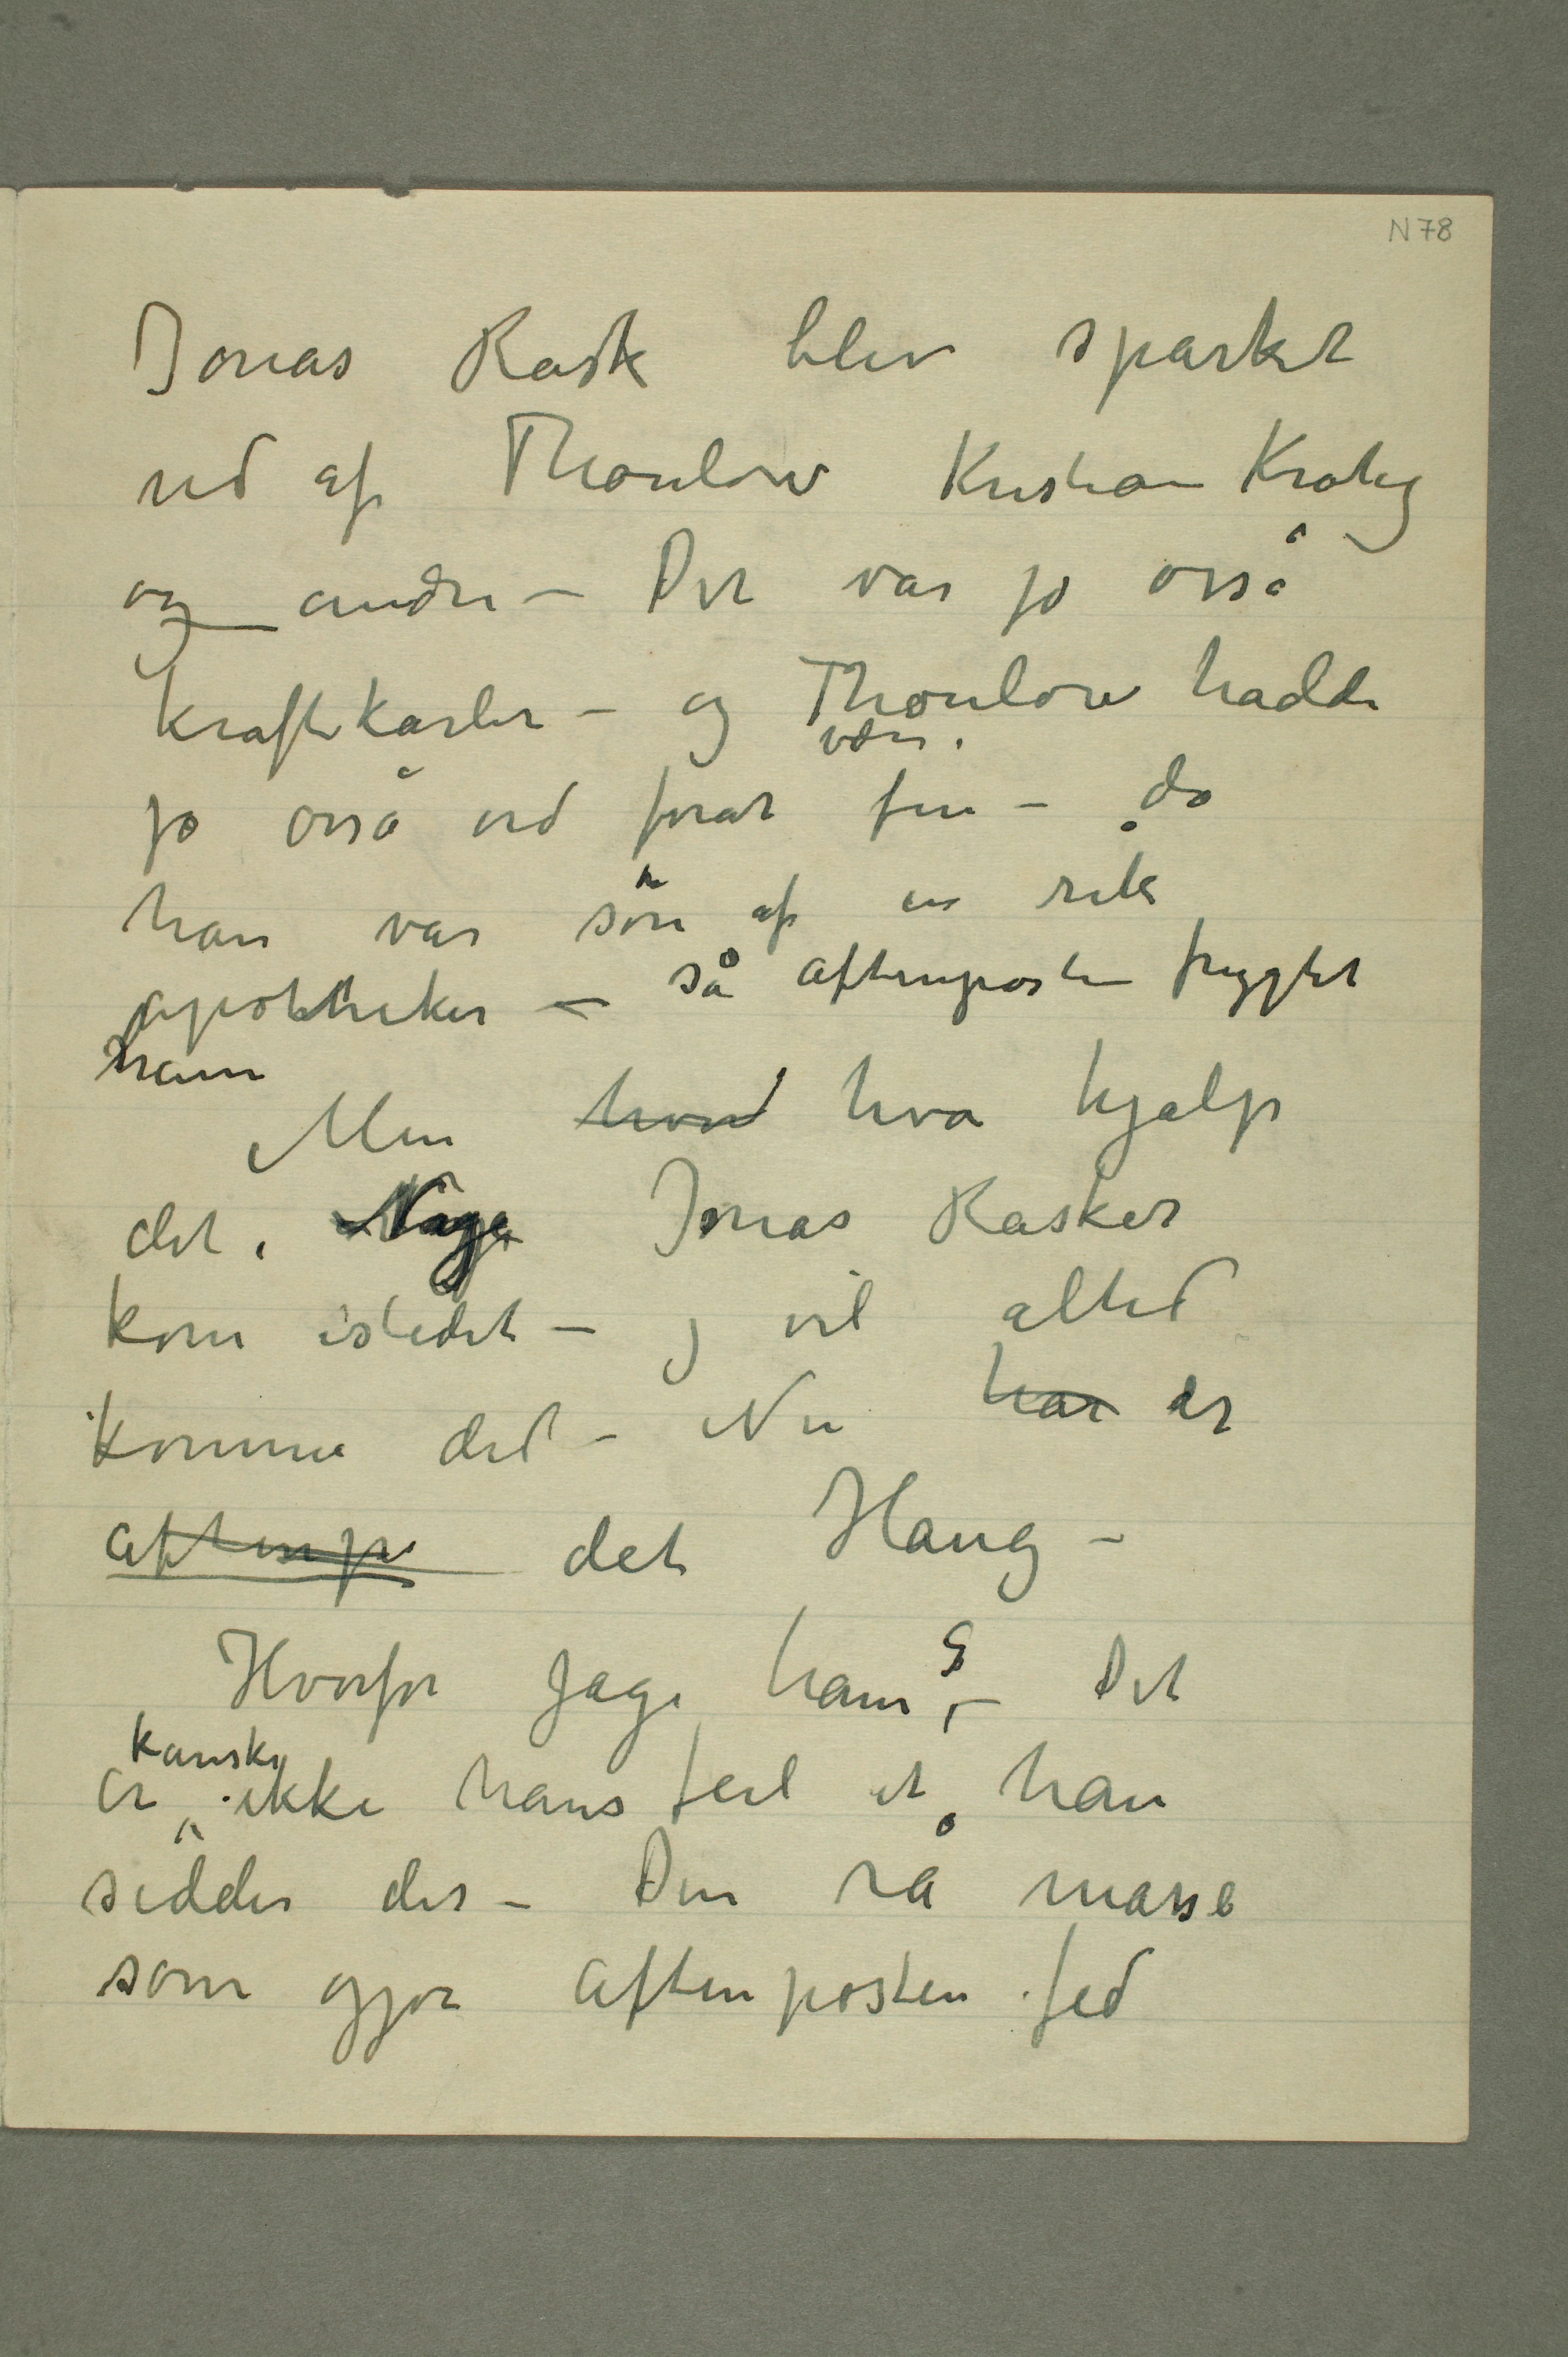 N 78
Jonas Rask blev sparket
ud af Thoulow Kristian Krohg
og andre – Det var jo osså
kraftkarler – og Thoulow hadde
være
jo osså ord forat fin – da
han var søn af en rik
apotheker – så aftenposten frygtet
ham
Men hvad hva hjalp
det. Jonas Rasker
kom istedet – og vil altid
komme did – Nu har er
aftenp det Haug –
Hvorfor jage ham? – Det
kanske
er ikke hans feil at han
sidder der – Den rå masse
som gjør aftenposten fed